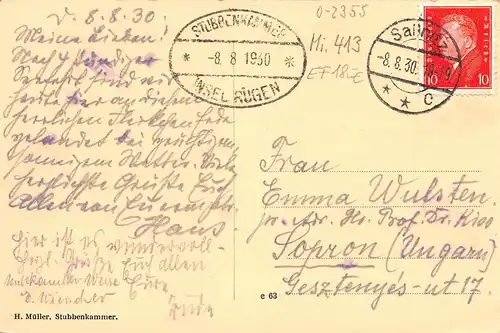 d. 8.8.30.
Meine Lieben!
Nach 4 stündiger
Seefahrt sind wir
heute hier an diesem
herrlichen Fleckchen Erde
gelandet bei prächtigem
sonnigem Wetter. Viele
herzlichste Grüße Euch
Allen von Eurem
Hans
Hier ist es wundervoll
Grüße Euch allen
Eure
H. Müller, Stubbenkammer.
STUBBENKAMMER
* 8/8 1930 *
INSEL RÜGEN
0-2355
Mi. 413
EF 18.-
Saßnitz
-8.8.30.
* * c
10 10
Frau
Emma Wulsten
Prof. Dr. Kiss
Sopron (Ungarn)
Gesztenyés-ut 17.
e 63